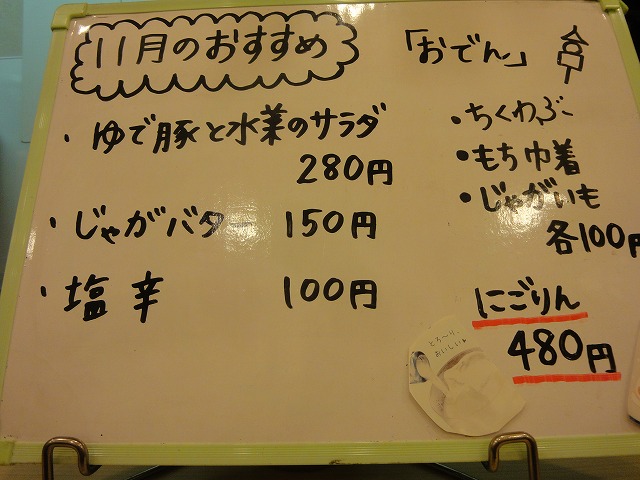 11月のおすすめ
・ゆで豚と水菜のサラダ
280円
・じゃがバター 150円
・塩辛 100円
「おでん」
・ちくわぶ
・もち巾着
・じゃがいも
各100円
にごりん
480円
とろ〜り、
おいしい♪